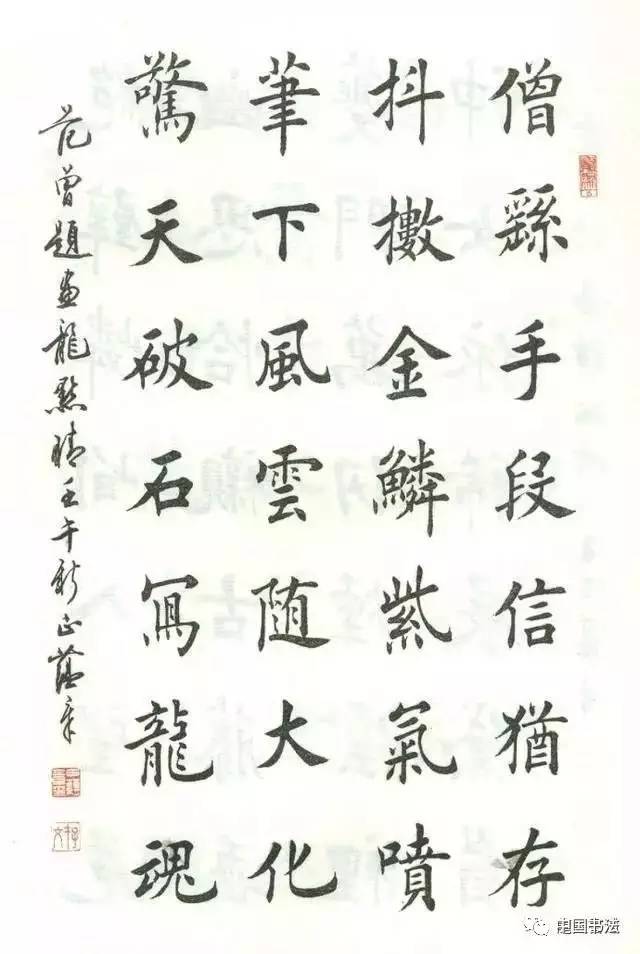 僧繇手段信猶存
抖擻金鱗紫氣噴
筆下風雲随大化
驚天破石寫龍魂
范曾題畫龍點睛壬午新正蕴章
中国书法